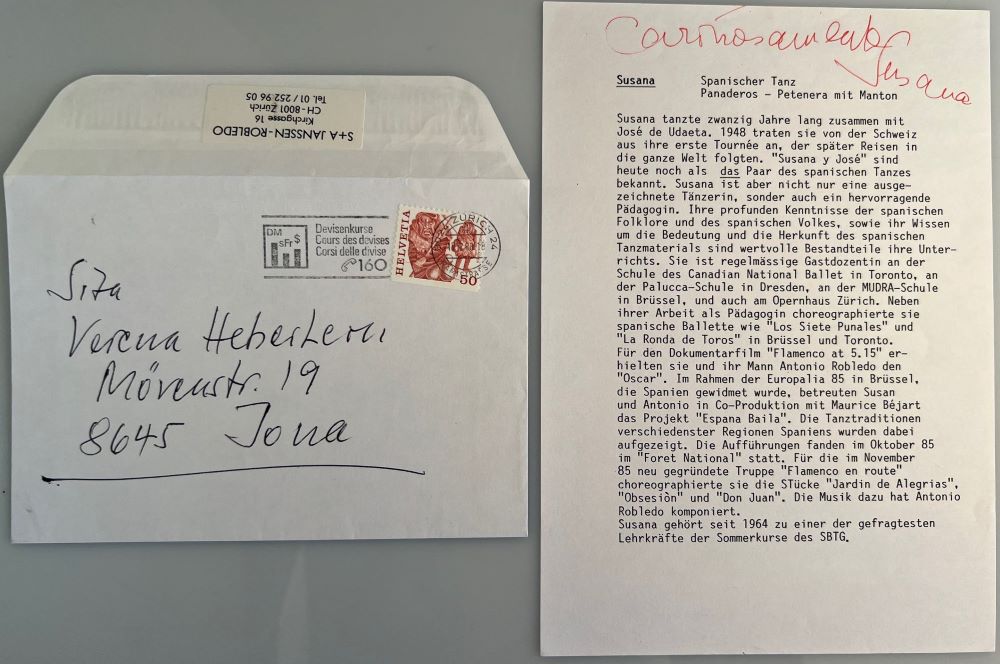 S+A JANSSEN-ROBLEDO
Kirchgasse 16
CH - 8001 Zürich
Tel. 01 / 252 96 05
DM
sFr $
Devisenkurse
Cours des devises
Corsi delle divise
160
HELVETIA
50
ZÜRICH 24
Verena
Mövenstr. 19
8645 Jona
Cariñosamente
Susana
Susana Spanischer Tanz
Panaderos - Petenera mit Manton
Susana tanzte zwanzig Jahre lang zusammen mit
José de Udaeta. 1948 traten sie von der Schweiz
aus ihre erste Tournée an, der später Reisen in
die ganze Welt folgten. "Susana y José" sind
heute noch als das Paar des spanischen Tanzes
bekannt. Susana ist aber nicht nur eine ausge-
zeichnete Tänzerin, sonder auch ein hervorragende
Pädagogin. Ihre profunden Kenntnisse der spanischen
Folklore und des spanischen Volkes, sowie ihr Wissen
um die Bedeutung und die Herkunft des spanischen
Tanzmaterials sind wertvolle Bestandteile ihre Unter-
richts. Sie ist regelmässige Gastdozentin an der
Schule des Canadian National Ballet in Toronto, an
der Palucca-Schule in Dresden, an der MUDRA-Schule
in Brüssel, und auch am Opernhaus Zürich. Neben
ihrer Arbeit als Pädagogin choreographierte sie
spanische Ballette wie "Los Siete Punales" und
"La Ronda de Toros" in Brüssel und Toronto.
Für den Dokumentarfilm "Flamenco at 5.15" er-
hielten sie und ihr Mann Antonio Robledo den
"Oscar". Im Rahmen der Europalia 85 in Brüssel,
die Spanien gewidmet wurde, betreuten Susan
und Antonio in Co-Produktion mit Maurice Béjart
das Projekt "Espana Baila". Die Tanztraditionen
verschiedenster Regionen Spaniens wurden dabei
aufgezeigt. Die Aufführungen fanden im Oktober 85
im "Foret National" statt. Für die im November
85 neu gegründete Truppe "Flamenco en route"
choreographierte sie die STücke "Jardin de Alegrias",
"Obsesiòn" und "Don Juan". Die Musik dazu hat Antonio
Robledo komponiert.
Susana gehört seit 1964 zu einer der gefragtesten
Lehrkräfte der Sommerkurse des SBTG.